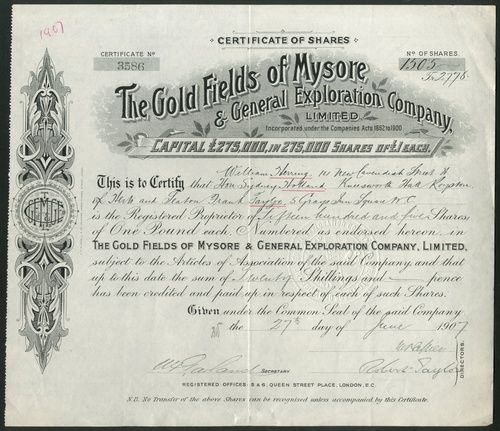 1907
CERTIFICATE OF SHARES
CERTIFICATE No
3586
No OF SHARES.
1505
Tr 2778
The Gold Fields of Mysore
& General Exploration Company,
LIMITED.
Incorporated under the Companies Acts 1862 to 1900.
CAPITAL £275,000, IN 275,000 SHARES OF £1 EACH.
William Herring, 110 New Cavendish Street W
This is to Certify that Hon Sydney Holland Kneesworth Hall Royston
of Herts and Seaton Frank Taylor 5 Grays Inn Square W C
is the Registered Proprietor of Fifteen hundred and five Shares
of One Pound each, Numbered as endorsed hereon, in
THE GOLD FIELDS OF MYSORE & GENERAL EXPLORATION COMPANY, LIMITED,
subject to the Articles of Association of the said Company and that
up to this date the sum of Twenty Shillings and pence
has been credited and paid up in respect of each of such Shares.
Given under the Common Seal of the said Company
the 27th day of June 1907
SECRETARY
Robert Taylor
DIRECTORS.
REGISTERED OFFICES: 5 & 6, QUEEN STREET PLACE, LONDON, E.C.
N.B. No Transfer of the above Shares can be recognised unless accompanied by this Certificate.